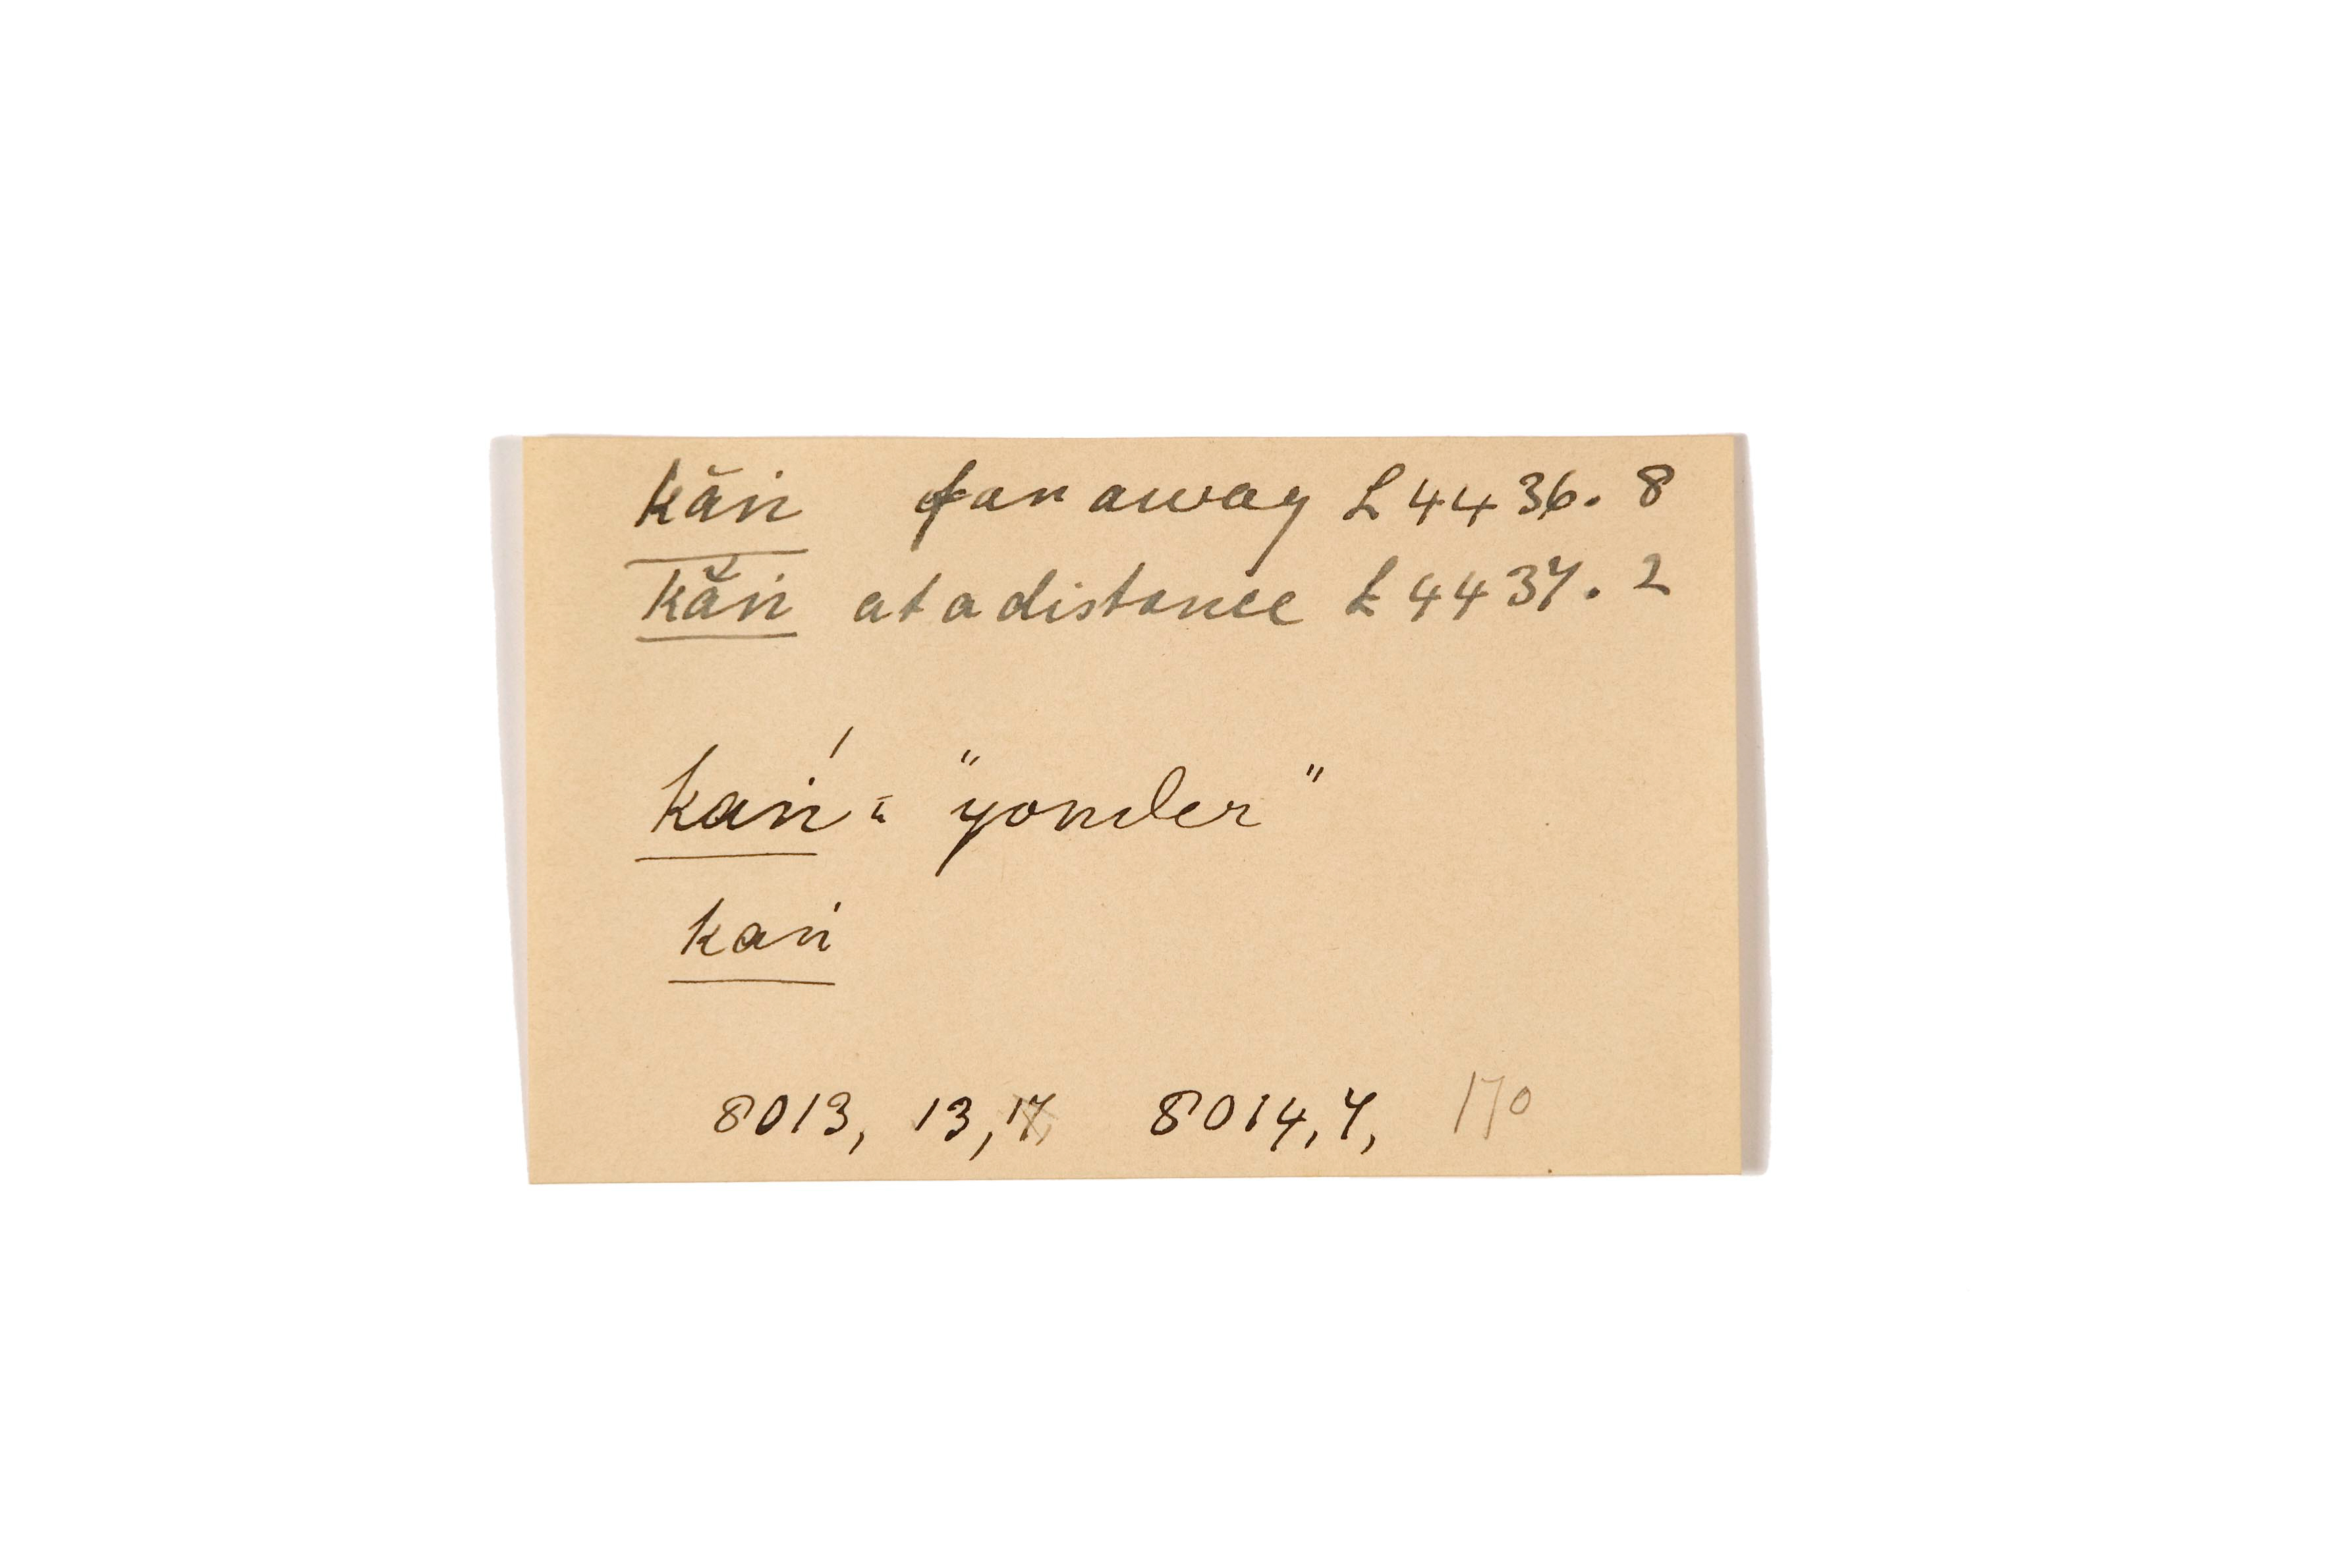 kăṅ far away L 4436. 8
kằṅ at a distance L 4437. 2
kaṅ́ = "yonder"
kaṅ
8013, 13, 17, 8014, 7, 170